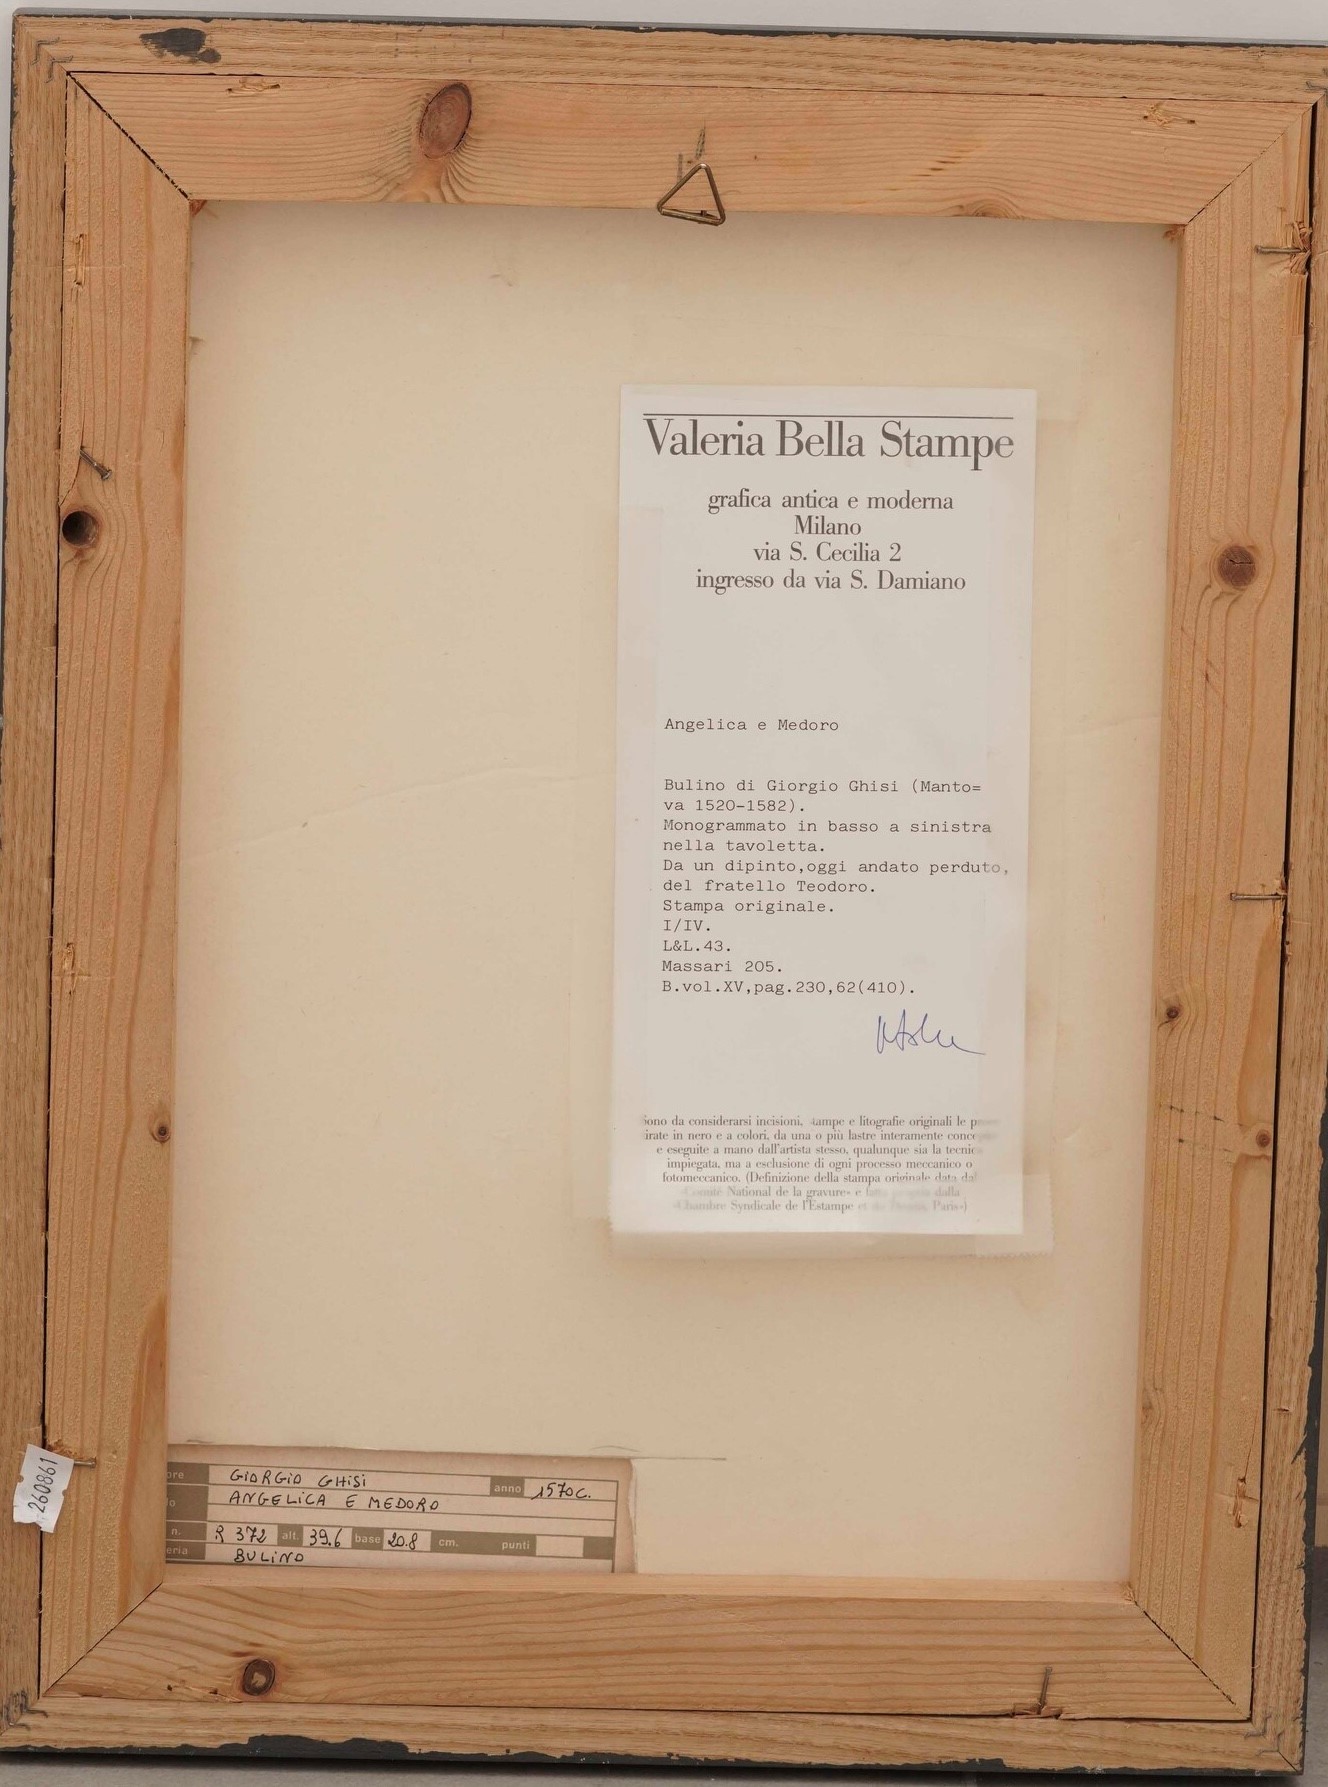 Valeria Bella Stampe
grafica antica e moderna
Milano
via S. Cecilia 2
ingresso da via S. Damiano
Angelica e Medoro
Bulino di Giorgio Ghisi (Manto=
va 1520-1582).
Monogrammato in basso a sinistra
nella tavoletta.
Da un dipinto,oggi andato perduto,
del fratello Teodoro.
Stampa originale.
I/IV.
L&L.43.
Massari 205.
B.vol.XV,pag.230,62(410).
da considerarsi incisioni, e litografie originali le
in nero e a colori, da una o più lastre interamente
e eseguite a mano dall'artista stesso, qualunque sia la
impiegata, ma a esclusione di ogni processo meccanico o
fotomeccanico. (Definizione della stampa originale data
National de la gravure» e dalla
Syndicale de l'Estampe et Paris»)
GIORGIO GHISI anno 1570c.
ANGELICA E MEDORO
n. R 372 alt. 39.6 base 20.8 cm. punti
BULINO
260861